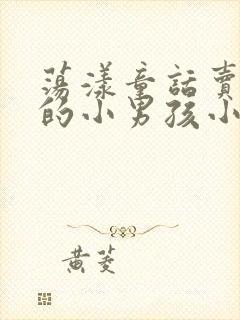 蕩漾童話賣
的小男孩小
黄菱